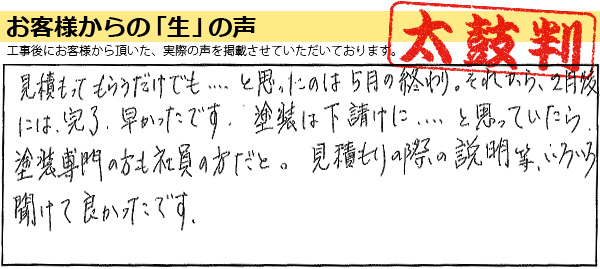 お客様からの「生」の声
太鼓判
工事後にお客様から頂いた、実際の声を掲載させていただいております。
見積もってもらうだけでも‥‥と思ったのは5月の終わり。それから、2月後
には、完了。早かったです。塗装は下請けに‥‥と思っていたら、
塗装専門の方も社員の方だと。見積もりの際の説明等、いろいろ
聞けて良かったです。